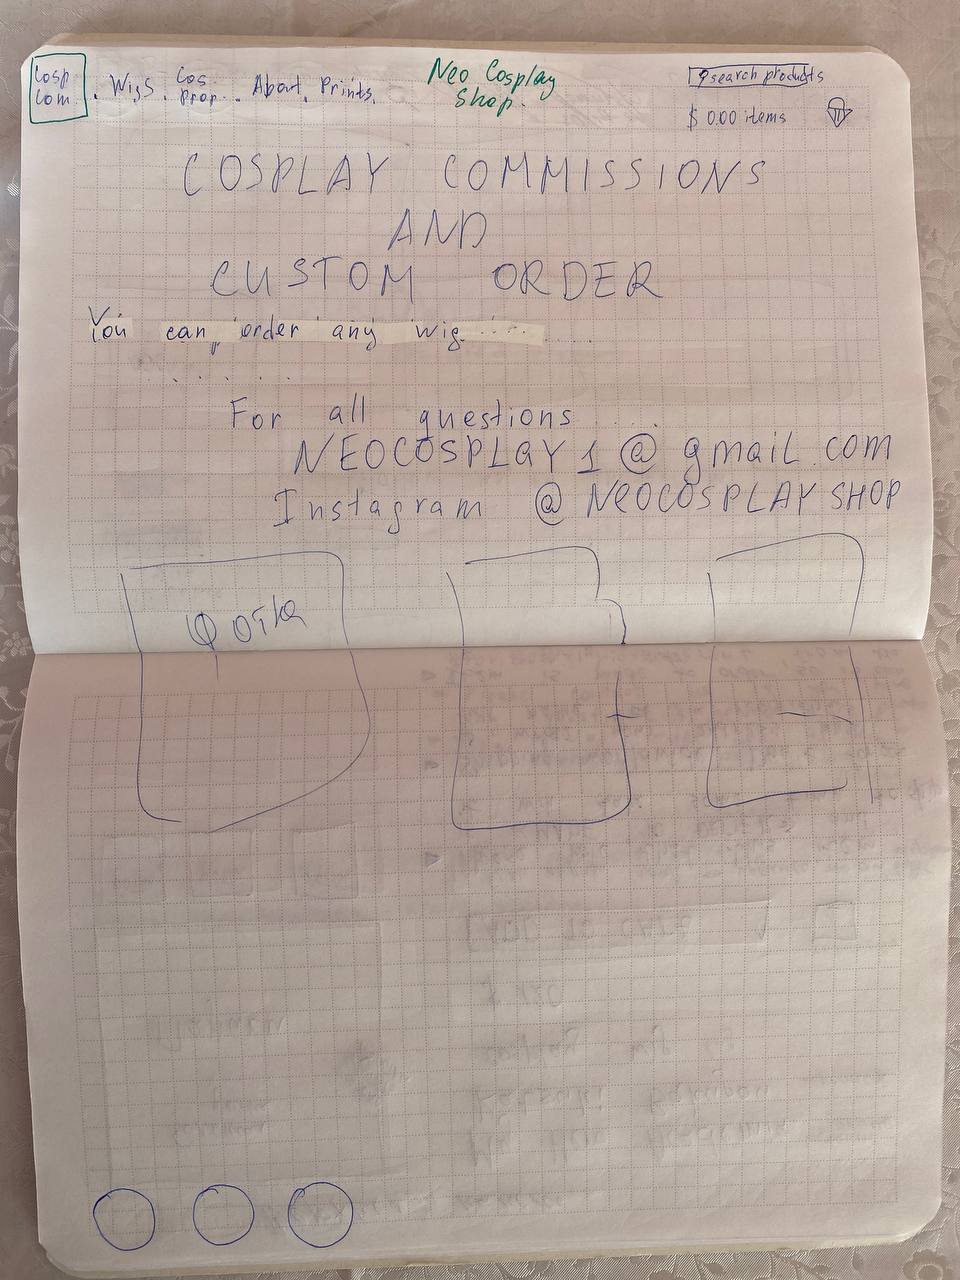 Cosp Com. Wigs. Cos Prop.. About. Prints.
Neo Cosplay Shop.
search products
$ 0.00 items
COSPLAY COMMISSIONS
AND
CUSTOM ORDER
You can order any wig .........
.......
For all questions ....
NEOCOSPLAY1@gmail.com
Instagram @NEOCOSPLAYSHOP
Фотка